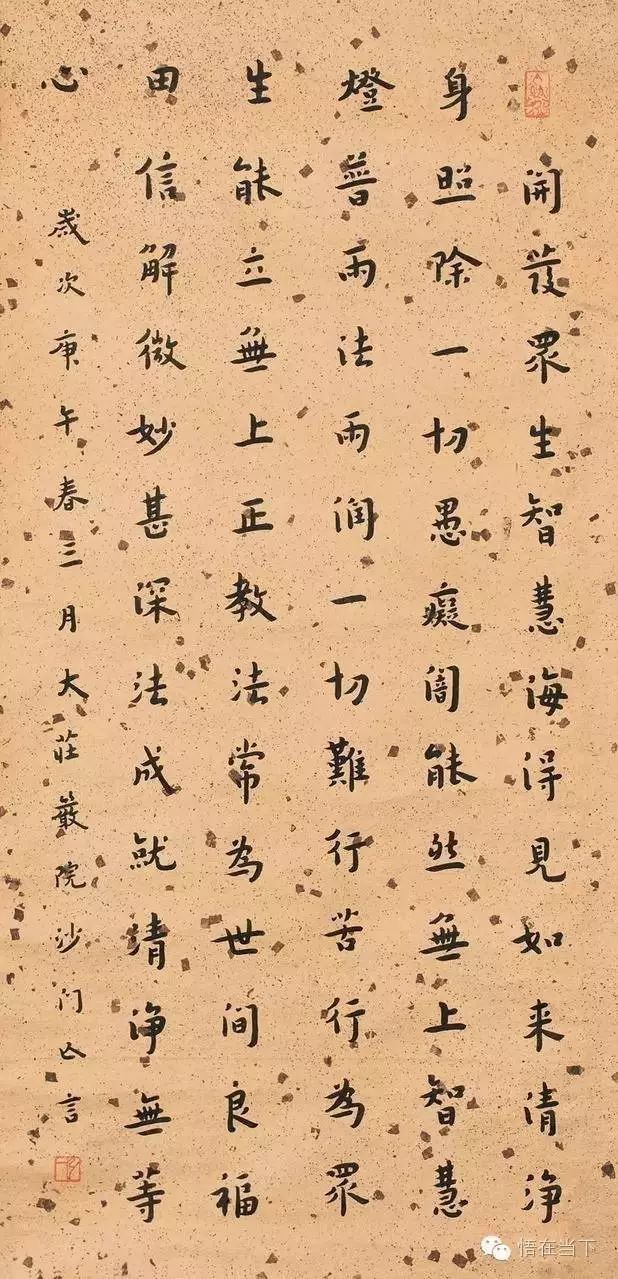 開發眾生智慧海得見如来清淨
身照除一切愚癡闇能然無上智慧
燈普雨法雨润一切難行苦行為眾
生能立無上正教法常為世间良福
田信解微妙甚深法成就清淨無等
心
歲次庚午春三月大莊嚴院沙门亾言
悟在当下